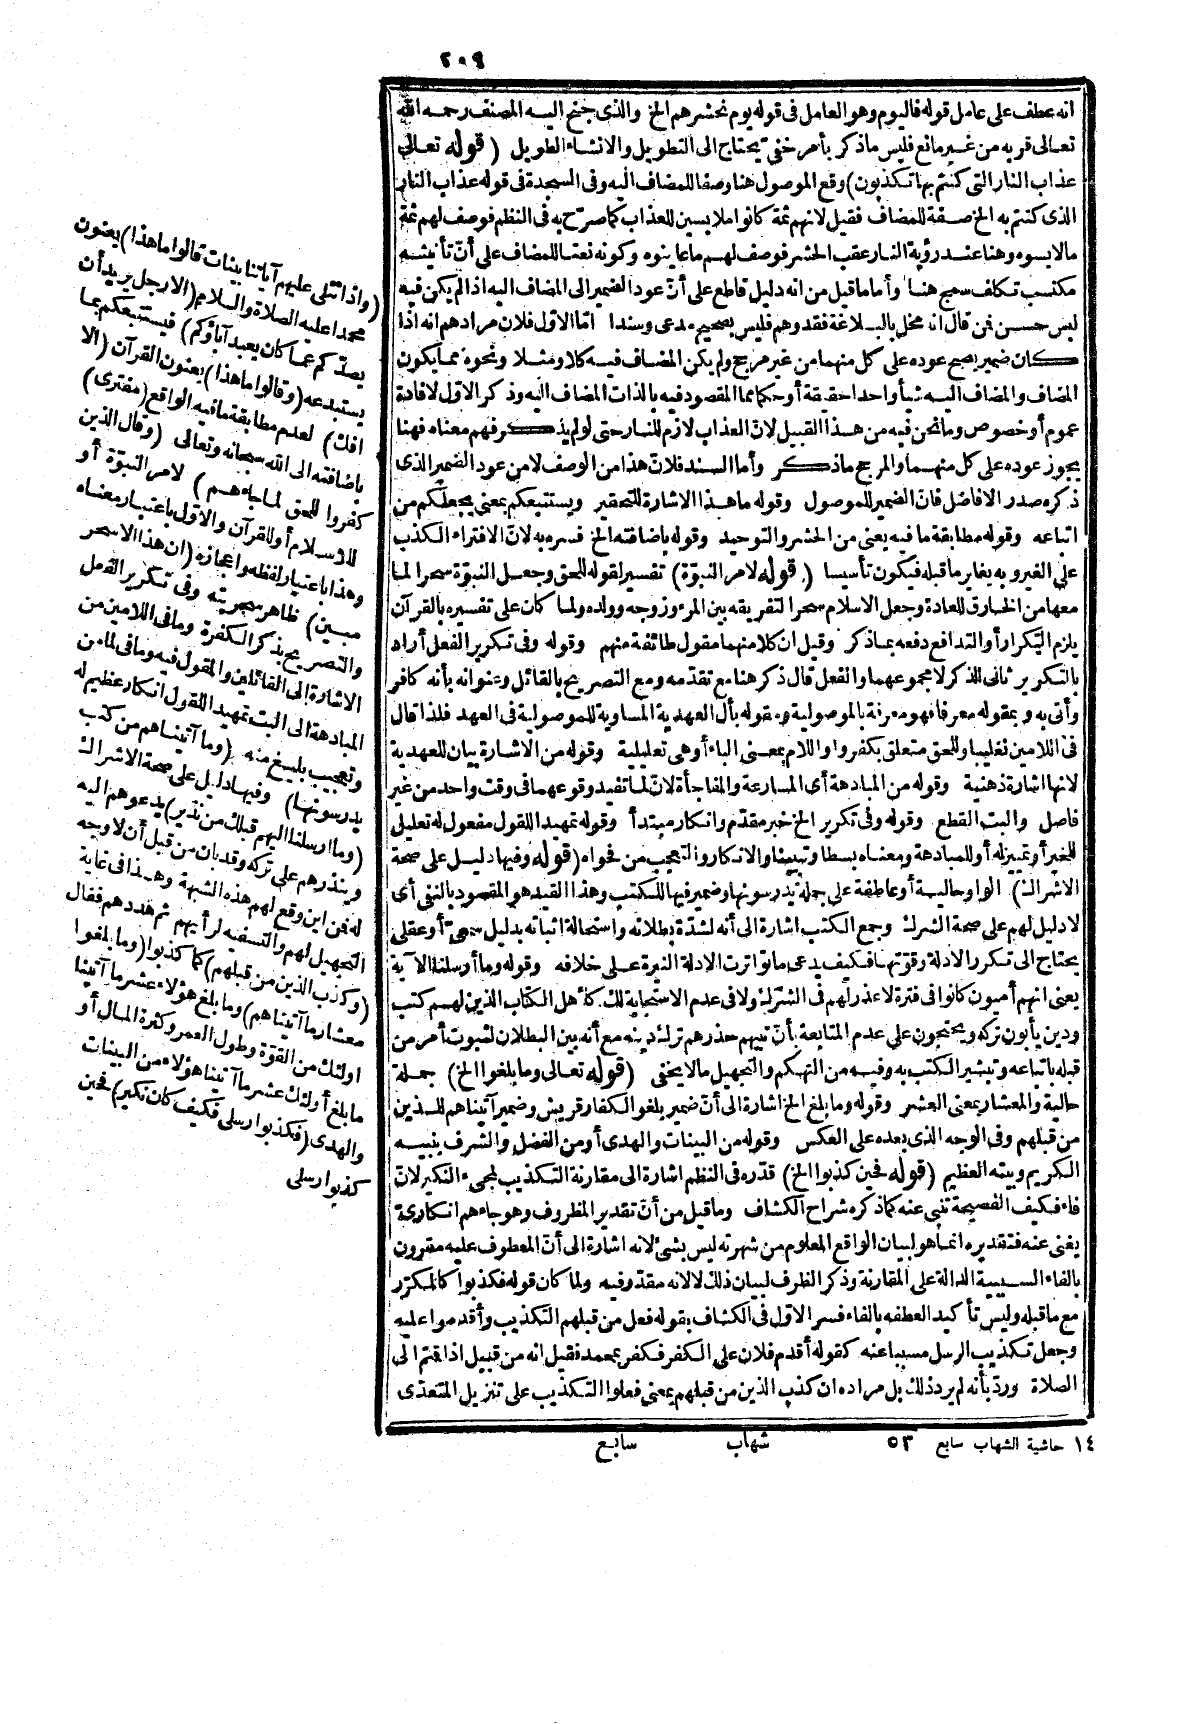 ٢٠٩
انه عطف على عامل قوله فاليوم وهو العامل فى قوله يوم نحشرهم الخ والذى جنح اليه المصنف رحمه الله
تعالى قربه من غير مانع فليس ماذكر بأمر خفىّ يحتاج الى التطويل والانشاء الطويل (قوله تعالى
عذاب النار التى كنتم بها تكذبون) وقع الموصول هنا وصفا للمضاف اليه وفى السجدة فى قوله عذاب النار
الذى كنتم به الخ صفة للمضاف فقيل لانهم ثمة كانوا ملابسين للعذاب كما صرّح به فى النظم فوصف لهم ثمة
مالابسوه وهنا عند رؤية النار عقب الحشر فوصف لهم ماعاينوه وكونه نعتا للمضاف على أنّ تأنيثه
مكتسب تكلف سمج هنا وأما ما قيل من انه دليل قاطع على أنّ عود الضمير الى المضاف اليه اذا لم يكن فيه
لبس حسن فمن قال انه مخل بالبلاغة فقد وهم فليس بصحيح مدعى وسندا امّا الاوّل فلان مرادهم انه اذا
كان ضمير يصح عوده على كل منهما من غير مرجح ولم يكن المضاف فيه كلا ومثلا ونحوه مما يكون
المضاف والمضاف اليه شيأ واحدا حقيقة أو حكما مما المقصود فيه بالذات المضاف اليه وذكر الاوّل لافادة
عموم أو خصوص ومانحن فيه من هذا القبيل لانّ العذاب لازم للنار حتى لو لم يذكر فهم معناه فهنا
يجوز عوده على كل منهما والمرجح ماذكر وأما السند فلانّ هذا من الوصف لا من عود الضمير الذى
ذكره صدر الافاضل فانّ الضمير للموصول وقوله ما هذا الاشارة للتحقير ويستتبعكم بمعنى يجعلكم من
اتباعه وقوله مطابقة مافيه يعنى من الحشر والتوحيد وقوله باضافته الخ فسره به لانّ الافتراء الكذب
على الغير وبه يغاير ماقبله فيكون تأسيسا (قوله لامر النبوّة) تفسير لقوله للحق وجعل النبوّة سحرا لما
معها من الخارق للعادة وجعل الاسلام سحرا لتفريقه بين المرء وزوجه وولده ولما كان على تفسيره بالقرآن
يلزم التكرار أو التدافع دفعه بماذكر وقيل ان كلا منهما مقول طائفة منهم وقوله وفى تكرير الفعل أراد
بالتكرير ثانى الذكر لا مجموعهما والفعل قال ذكر هنا مع تقدمه ومع التصريح بالقائل وعنوانه بأنه كافر
وأتى به وبمقوله معرفا فهو معرفة بالموصولية ومقوله بأل العهدية المساوية للموصولية فى العهد فلذا قال
فى اللامين تغليبا وللحق متعلق بكفروا واللام بمعنى الباء أو هى تعليلية وقوله من الاشارة بيان للعهدية
لانها اشارة ذهنية وقوله من المبادهة أى المسارعة والمفاجأة لانّ لما تفيد وقوعهما فى وقت واحد من غير
فاصل والبت القطع وقوله وفى تكرير الخ خبر مقدّم وانكار مبتدأ وقوله تمهيد اللقول مفعول له تعليلى
للخبر أو تمييز له أو للمبادهة ومعناه بسطا وتبيينا والانكار والتعجب من فحواه (قوله وفيها دليل على صحة
الاشراك) الواو حالية أو عاطفة على جملة يدرسونها وضمير فيها للكتب وهذا القيد هو المقصود بالنفى أى
لا دليل لهم على صحة الشرك وجمع الكتب اشارة الى أنه لشدّة بطلانه واستحالة اثباته بدليل سمعىّ أو عقلى
يحتاج الى تكرر الادلة وقوّتها فكيف يدعى ماتواترت الادلة النيرة على خلافه وقوله وما أرسلنا الآية
يعنى انهم أميون كانوا فى فترة لا عذر لهم فى الشرك ولا فى عدم الاستجابة لك كأهل الكتاب الذين لهم كتب
ودين يأبون تركه ويحتجون على عدم المتابعة بأنّ نبيهم حذرهم ترك دينه مع أنه بين البطلان لثبوت أمر من
قبله باتباعه وتبشير الكتب به وفيه من التهكم والتجهيل مالا يخفى (قوله تعالى وما بلغوا الخ) جملة
حالية والمعشار بمعنى العشر وقوله وما بلغ الخ اشارة الى أنّ ضمير بلغوا لكفار قريش وضمير آتيناهم للذين
من قبلهم وفى الوجه الذى بعده على العكس وقوله من البينات والهدى أو من الفضل والشرف بنبيه
الكريم وبيته العظيم (قوله فحين كذبوا الخ) قدّره فى النظم اشارة الى مقارنة التكذيب لمجىء النكير لانّ
فاء فكيف الفصيحة تنبئ عنه كما ذكره شراح الكشاف وماقيل من أنّ تقدير المظروف وهو جاءهم انكارى
يغنى عنه فتقديره انما هو لبيان الواقع المعلوم من شهرته ليس بشئ لانه اشارة الى أنّ المعطوف عليه مقرون
بالفاء السببية الدالة على المقارنة وذكر الظرف لبيان ذلك لا لانه مقدّر فيه ولما كان قوله فكذبوا كالمكرّر
مع ماقبله وليس تأكيد العطفه بالفاء فسر الاوّل فى الكشاف بقوله فعل من قبلهم التكذيب وأقدموا عليه
وجعل تكذيب الرسل مسببا عنه كقوله أقدم فلان على الكفر فكفر بمحمد فقيل انه من قبيل اذا قمتم الى
الصلاة وردّ بأنه لم يرد ذلك بل مراده ان كذب الذين من قبلهم بمعنى فعلوا التكذيب على تنزيل المتعدّى
١٤ حاشية الشهاب سابع ٥٣ شهاب سابع
(واذا تتلى عليهم آياتنا بينات قالوا ما هذا) يعنون
محمدا عليه الصلاة والسلام (الا رجل يريد أن
يصدّكم عما كان يعبد آباؤكم) فيستتبعكم بما
يستبدعه (وقالوا ما هذا) يعنون القرآن (الا
افك) لعدم مطابقة مافيه الواقع (مفترى)
باضافته الى الله سبحانه وتعالى (وقال الذين
كفروا للحق لما جاءهم) لامر النبوّة أو
للاسلام أو للقرآن والاوّل باعتبار معناه
وهذا باعتبار لفظه واعجازه (ان هذا الا سحر
مبين) ظاهر سحريته وفى تكرير الفعل
والتصريح بذكر الكفرة ومافى اللامين من
الاشارة الى القائلين والمقول فيه ومافى لما من
المبادهة الى البت تمهيد اللقول انكار عظيم له
وتعجيب بليغ منه (وما آتيناهم من كتب
يدرسونها) وفيها دليل على صحة الاشراك
(وما أرسلنا اليهم قبلك من نذير) يدعوهم اليه
وينذرهم على تركه وقد بان من قبل أن لا وجه
له فمن اين وقع لهم هذه الشبهة وهذا فى غاية
التجهيل لهم والتسفيه لرأيهم ثم هددهم فقال
(وكذب الذين من قبلهم) كما كذبوا (وما بلغوا
معشار ما آتيناهم) وما بلغ هؤلاء عشر ما آتينا
اولئك من القوّة وطول العمر وكثرة المال أو
ما بلغ أولئك عشر ما آتينا هؤلاء من البينات
والهدى (فكذبوا رسلى فكيف كان نكير) فحين
كذبوا رسلى